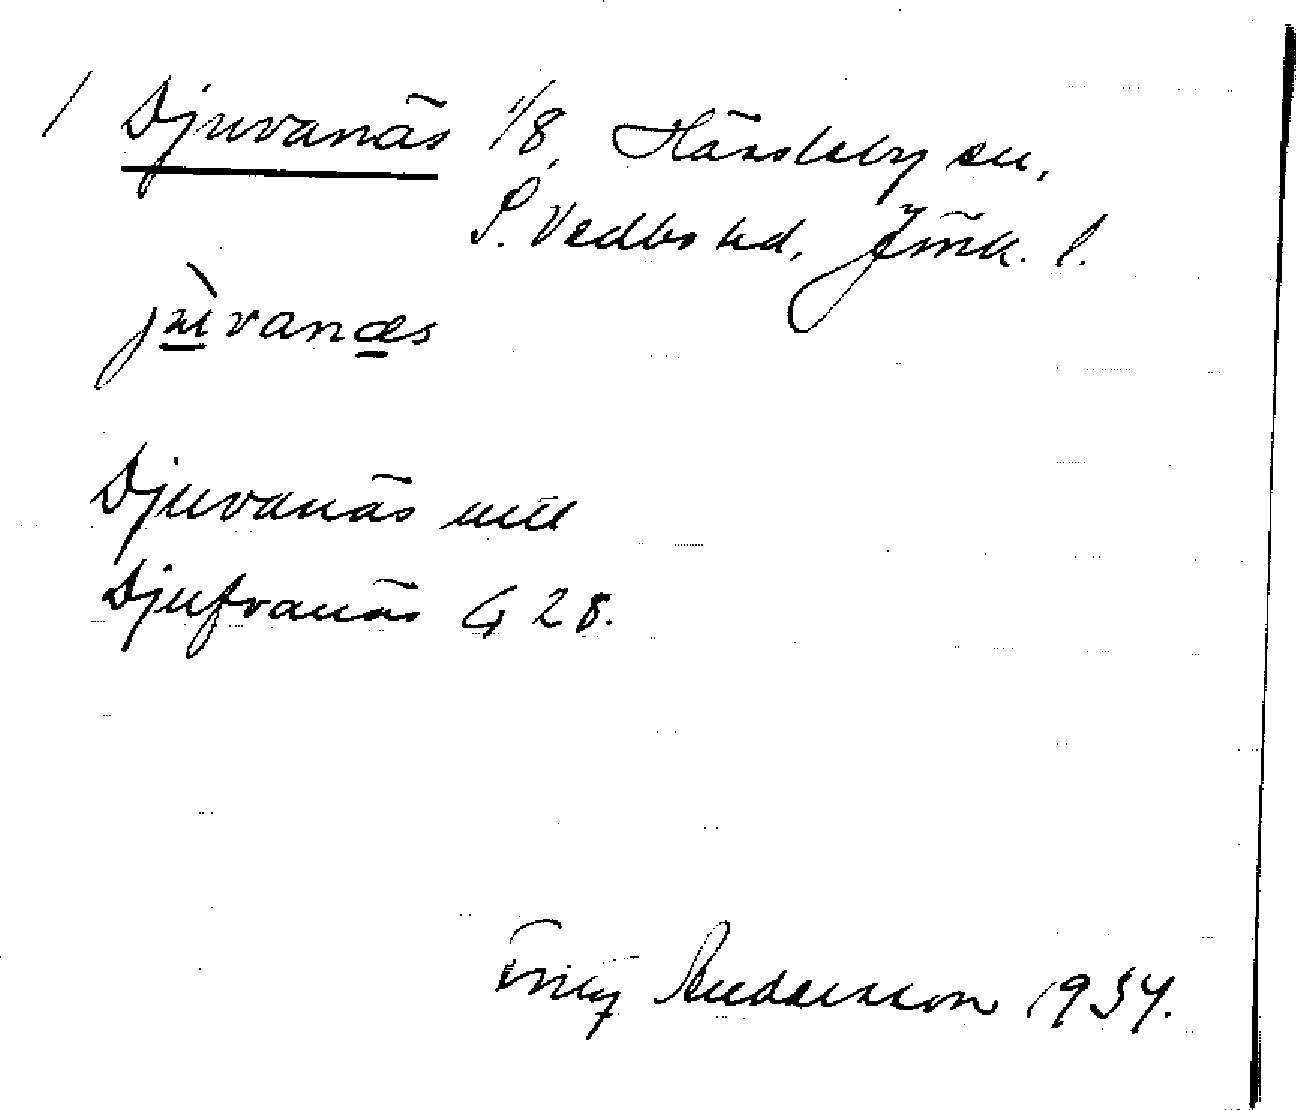 / Djuvanäs 1/8, Hässleby sn,
S. Vedbo hd, Jönk. l.
jùvanæs
Djuvanäs
Djufvanäs G 28.
Andersson 1934.